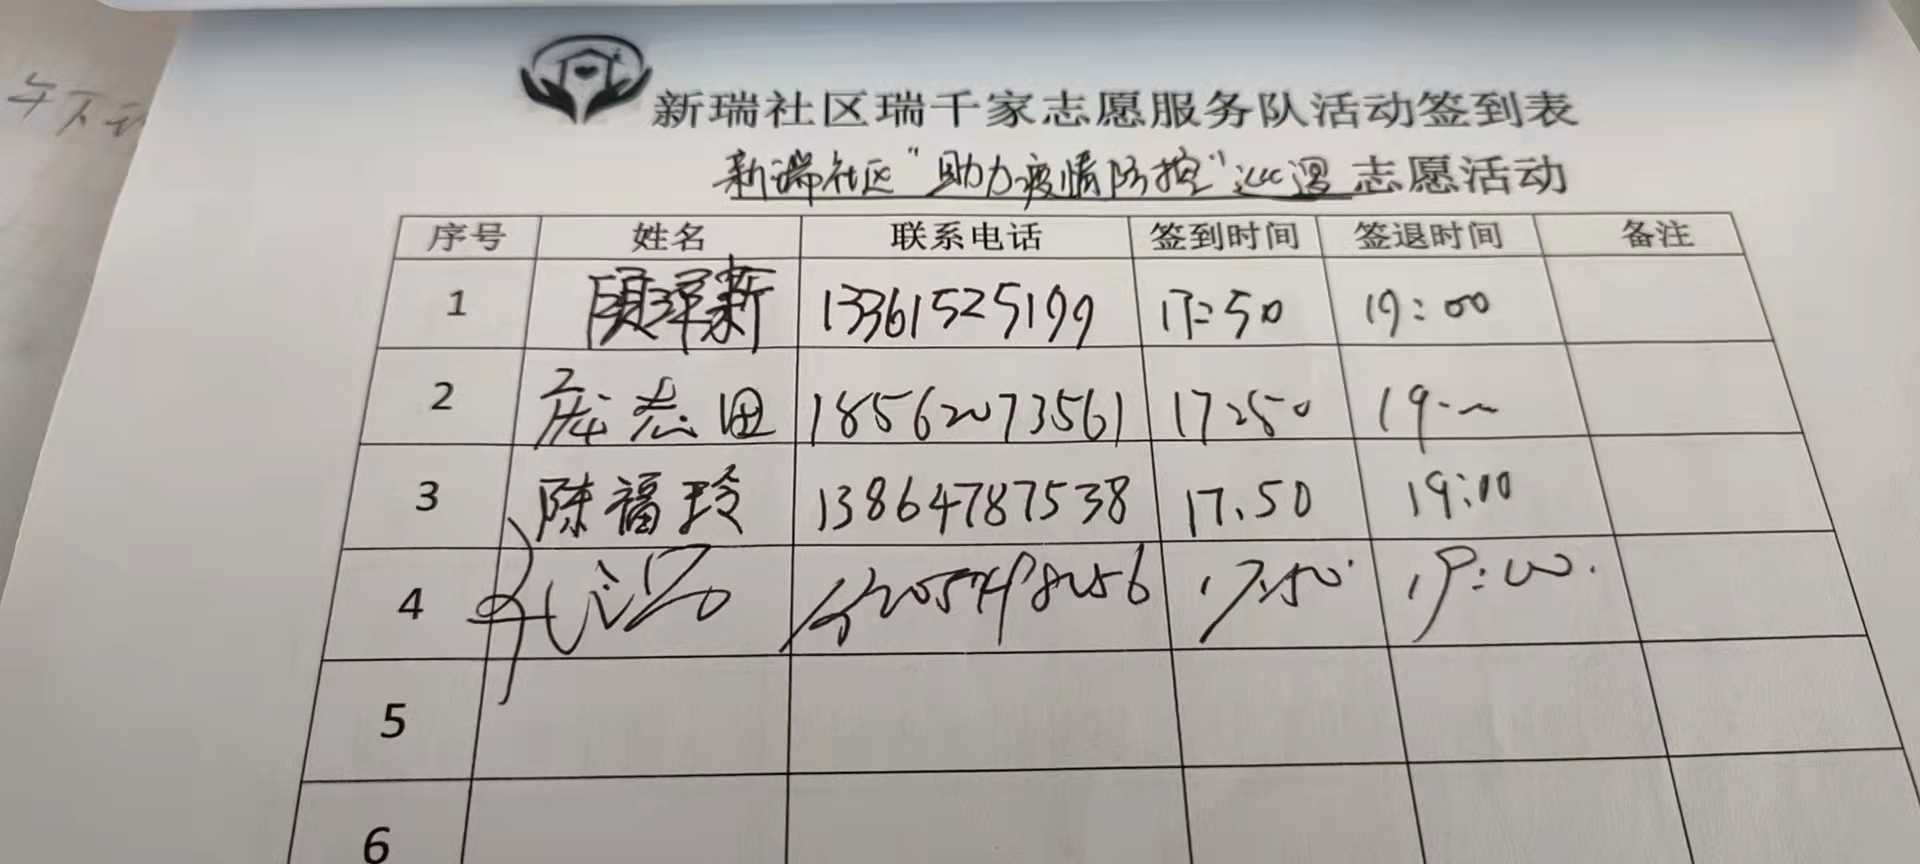 新瑞社区瑞千家志愿服务队活动签到表
新瑞社区"助力疫情防控"巡逻志愿活动
序号 姓名 联系电话 签到时间 签退时间 备注
1 13361525199 17:50 19:00
2 庞志田 18562073561 17:50 19:00
3 陈福玲 13864787538 17.50 19:00
4 17:50 19:00
5
6